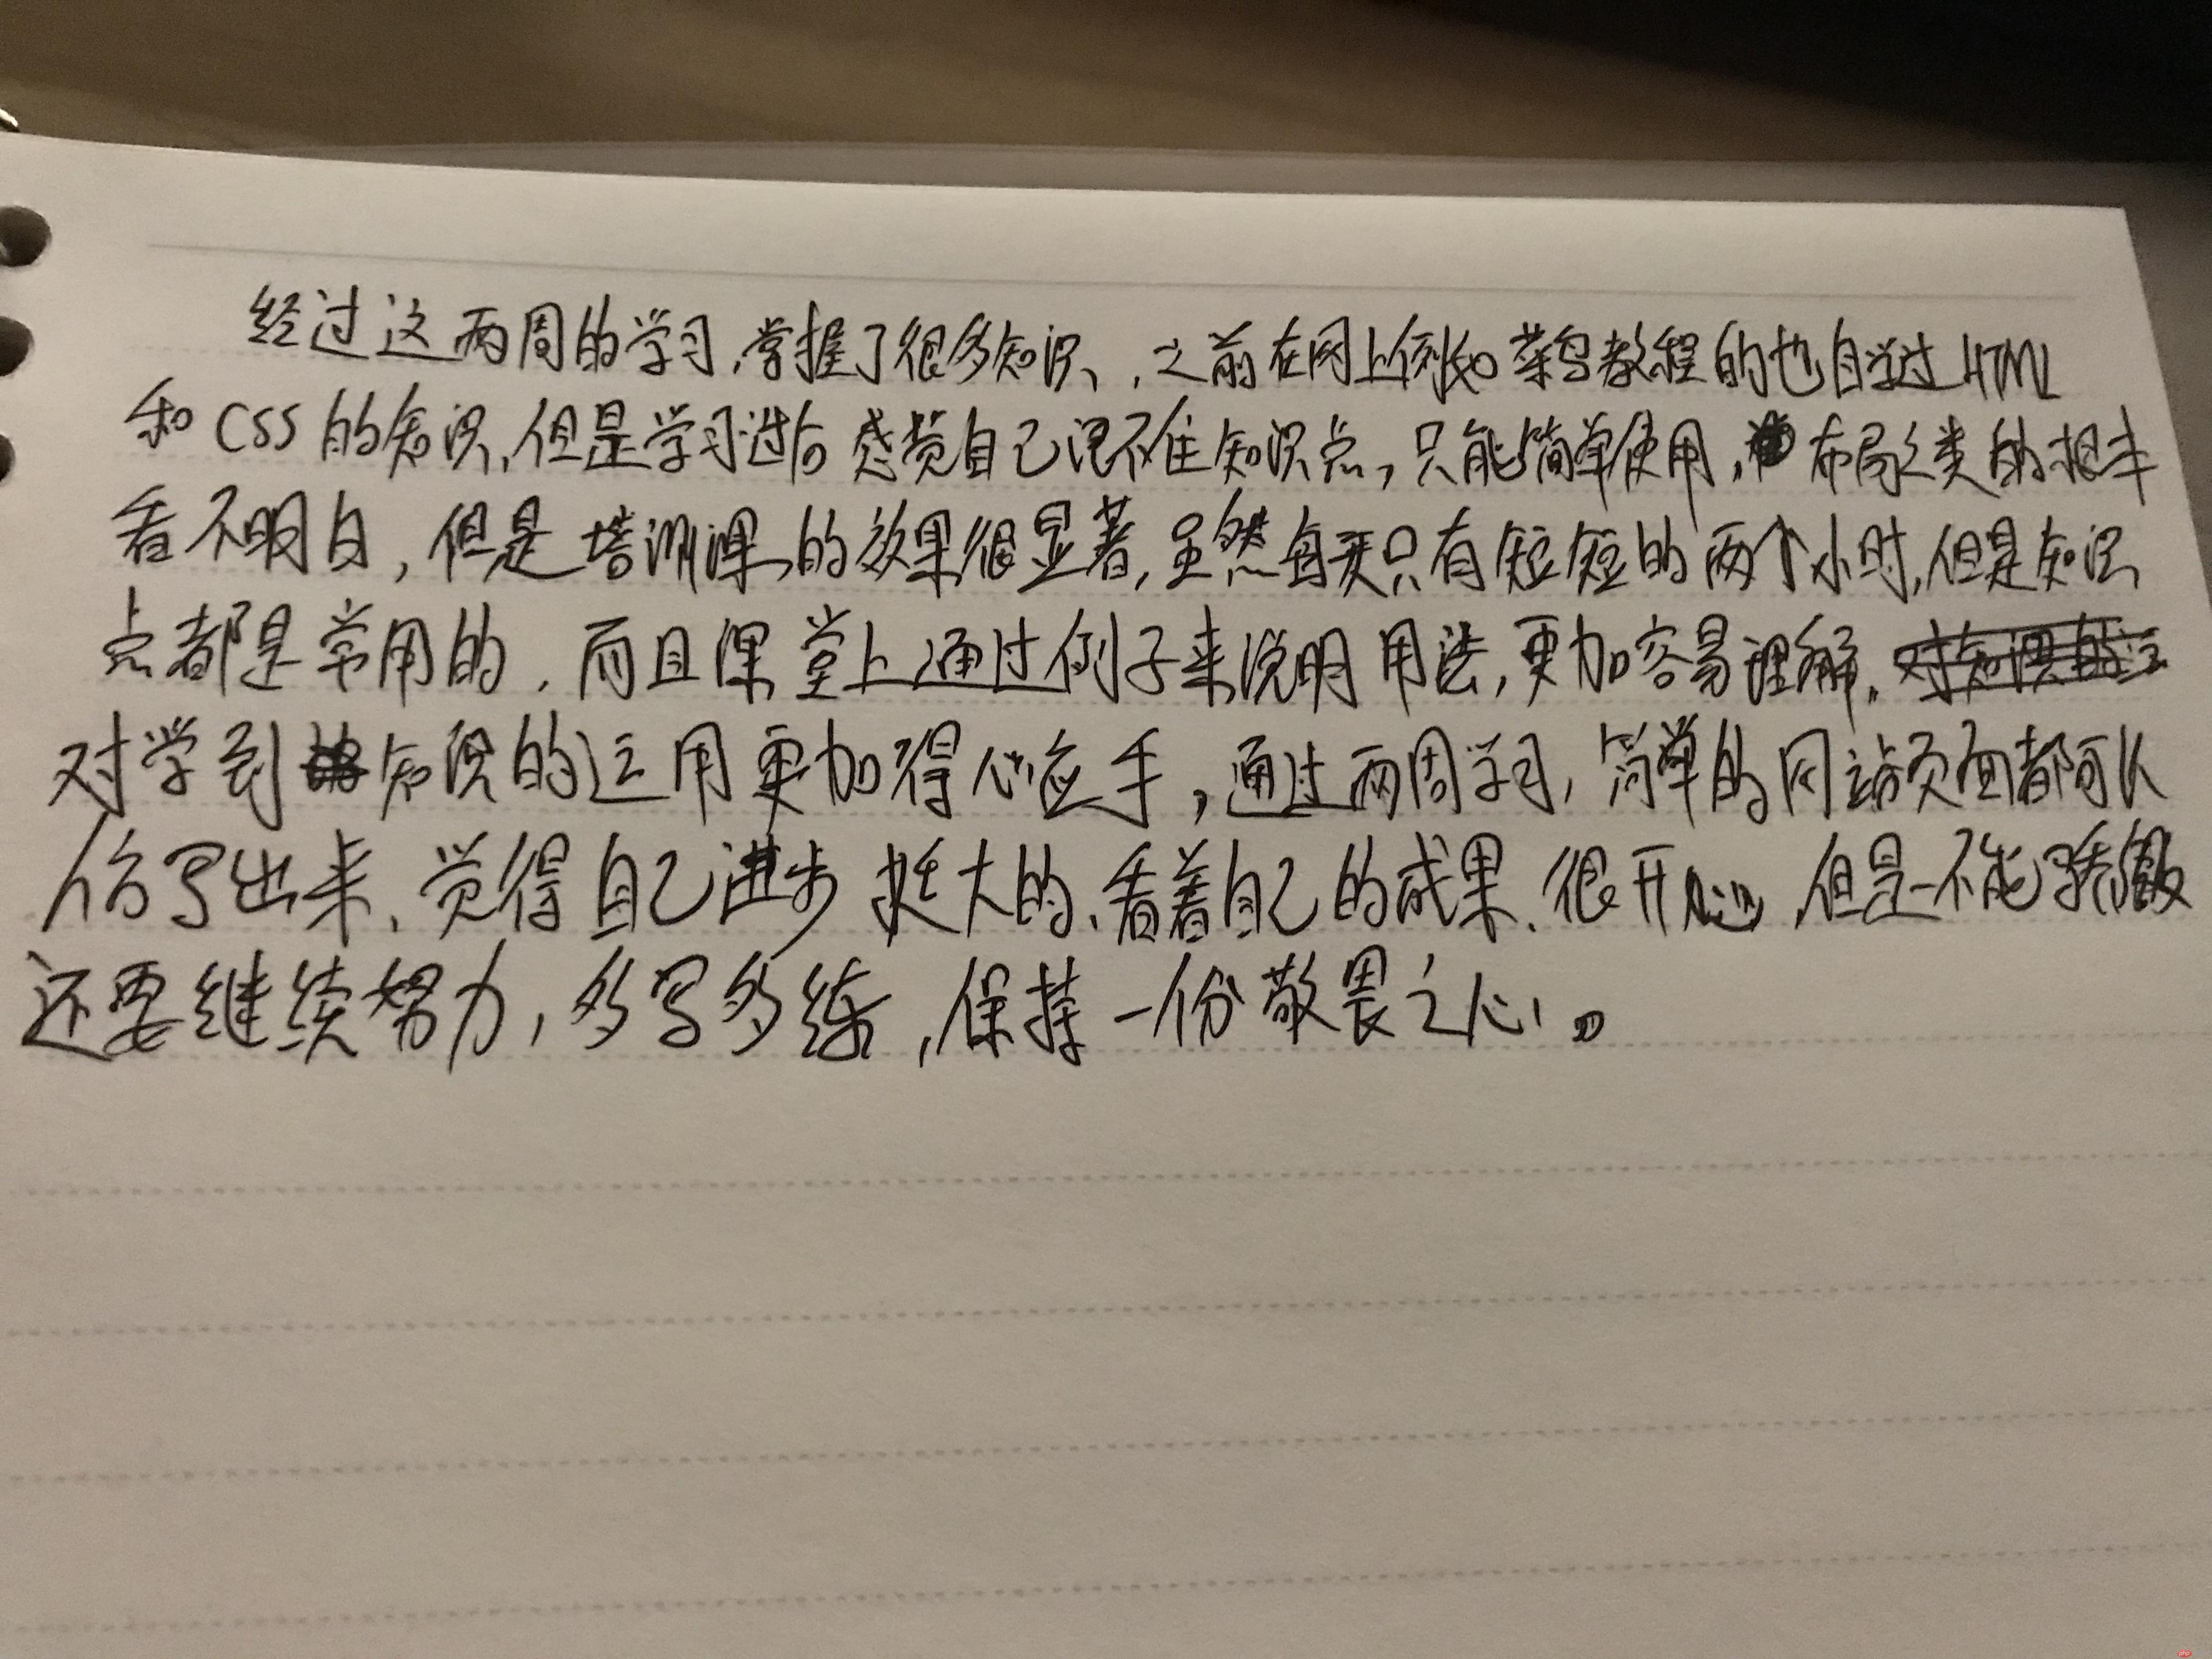 经过这两周的学习,掌握了很多知识,之前在网上例如菜鸟教程的也自学过HTML
和CSS的知识,但是学习过后感觉自己记不住知识点,只能简单使用,布局之类的根本
看不明白,但是培训课的效果很显著,虽然每天只有短短的两个小时,但是知识
点都是常用的,而且课堂上通过例子来说明用法,更加容易理解,
对学到知识的运用更加得心应手,通过两周学习,简单的网站页面都可以
仿写出来,觉得自己进步挺大的,看着自己的成果,很开心,但是不能骄傲
还要继续努力,多写多练,保持一份敬畏之心。